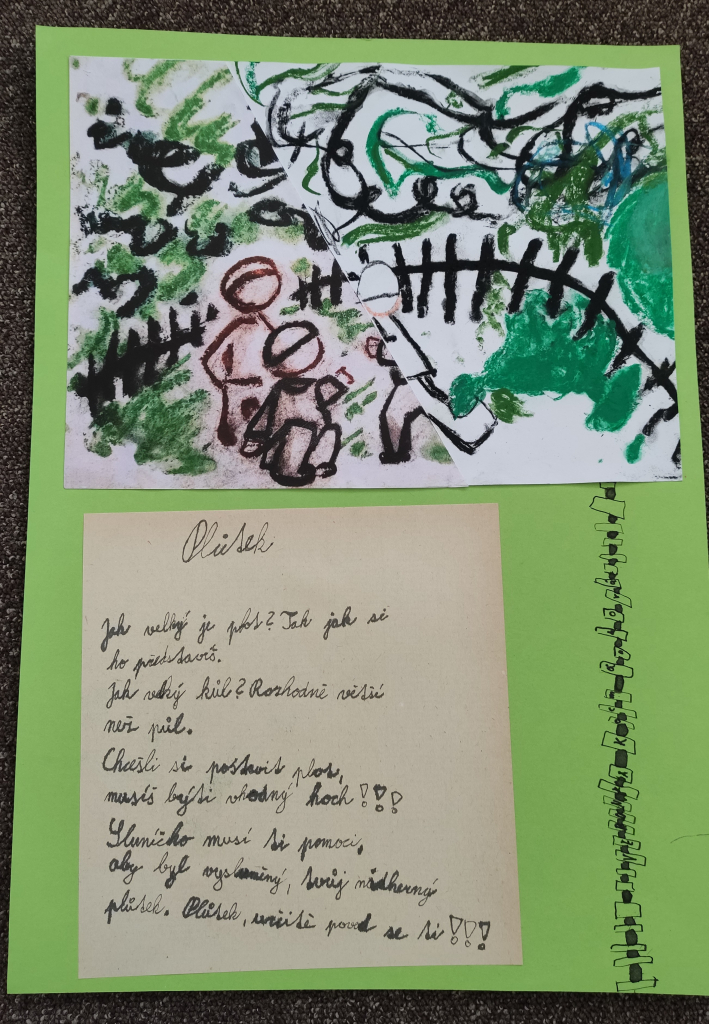 Plůtek
Jak velký je plot? Tak jak si
ho představíš.
Jak velký kůl? Rozhodně větší
než půl.
Chceš li si postavit plot,
musíš býti vhodný hoch!!!
Sluníčko musí ti pomoci,
aby byl vysluněný, tvůj nádherný
plůtek. Plůtek, určitě povod se ti!!!